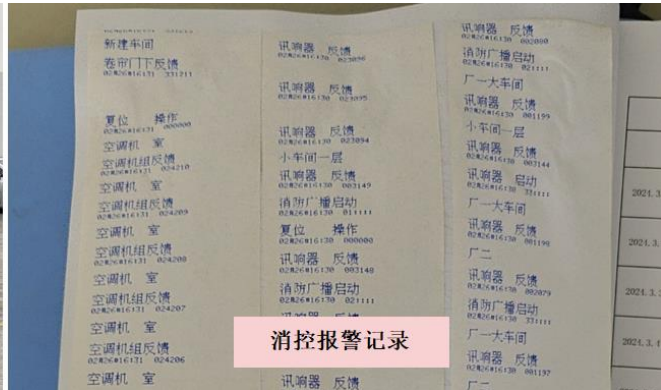 新建车间
卷帘门下反馈
02月26日16:31 331211
复位 操作
02月26日16:31 000000
空调机 室
空调机组反馈
02月26日16:31 024210
空调机 室
空调机组反馈
02月26日16:31 024209
空调机 室
空调机组反馈
02月26日16:31 024208
空调机 室
空调机组反馈
02月26日16:31 024207
空调机 室
空调机组反馈
02月26日16:31 024206
空调机 室
讯响器 反馈
02月26日16:30 023096
讯响器 反馈
02月26日16:30 023095
讯响器 反馈
02月26日16:30 023094
小车间一层
讯响器 反馈
02月26日16:30 003149
消防广播启动
02月26日16:30 011111
复位 操作
02月26日16:30 000000
讯响器 反馈
02月26日16:30 003148
消防广播启动
02月26日16:30 021111
讯响器 反馈
讯响器 反馈
02月26日16:30 002080
消防广播启动
02月26日16:30 021111
厂一大车间
讯响器 反馈
02月26日16:30 001199
小车间一层
讯响器 反馈
02月26日16:30 003144
讯响器 启动
02月26日16:30 331111
厂一大车间
讯响器 反馈
02月26日16:30 001198
厂二
讯响器 反馈
02月26日16:30 002079
消防广播启动
02月26日16:30 331111
厂一大车间
讯响器 反馈
02月26日16:30 001197
厂一
2024.3.
2024.3.
2024.3.
2024.3.4
消控报警记录